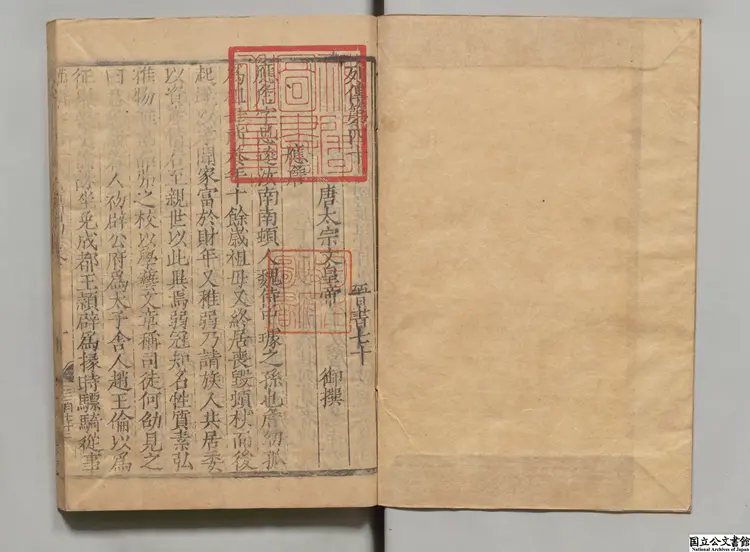 列傳第四十 晉書七十
唐太宗文皇帝 御撰
應詹
應詹字思遠汝南南頓人魏侍中璩之孫也詹幼孤
爲祖母所養年十餘歲祖母又終居喪毀頓杖而後
起遂以孝聞家富於財年又稚弱乃請族人共居委
以資產情若至親世以此異焉弱冠知名性質素弘
雅物雖犯而弗之校以學藝文章稱司徒何劭見之
曰君子哉若人初辟公府爲太子舍人趙王倫以爲
征東長史倫誅坐免成都王穎辟爲掾時驃騎從事
国立公文書館
National Archives of Japan